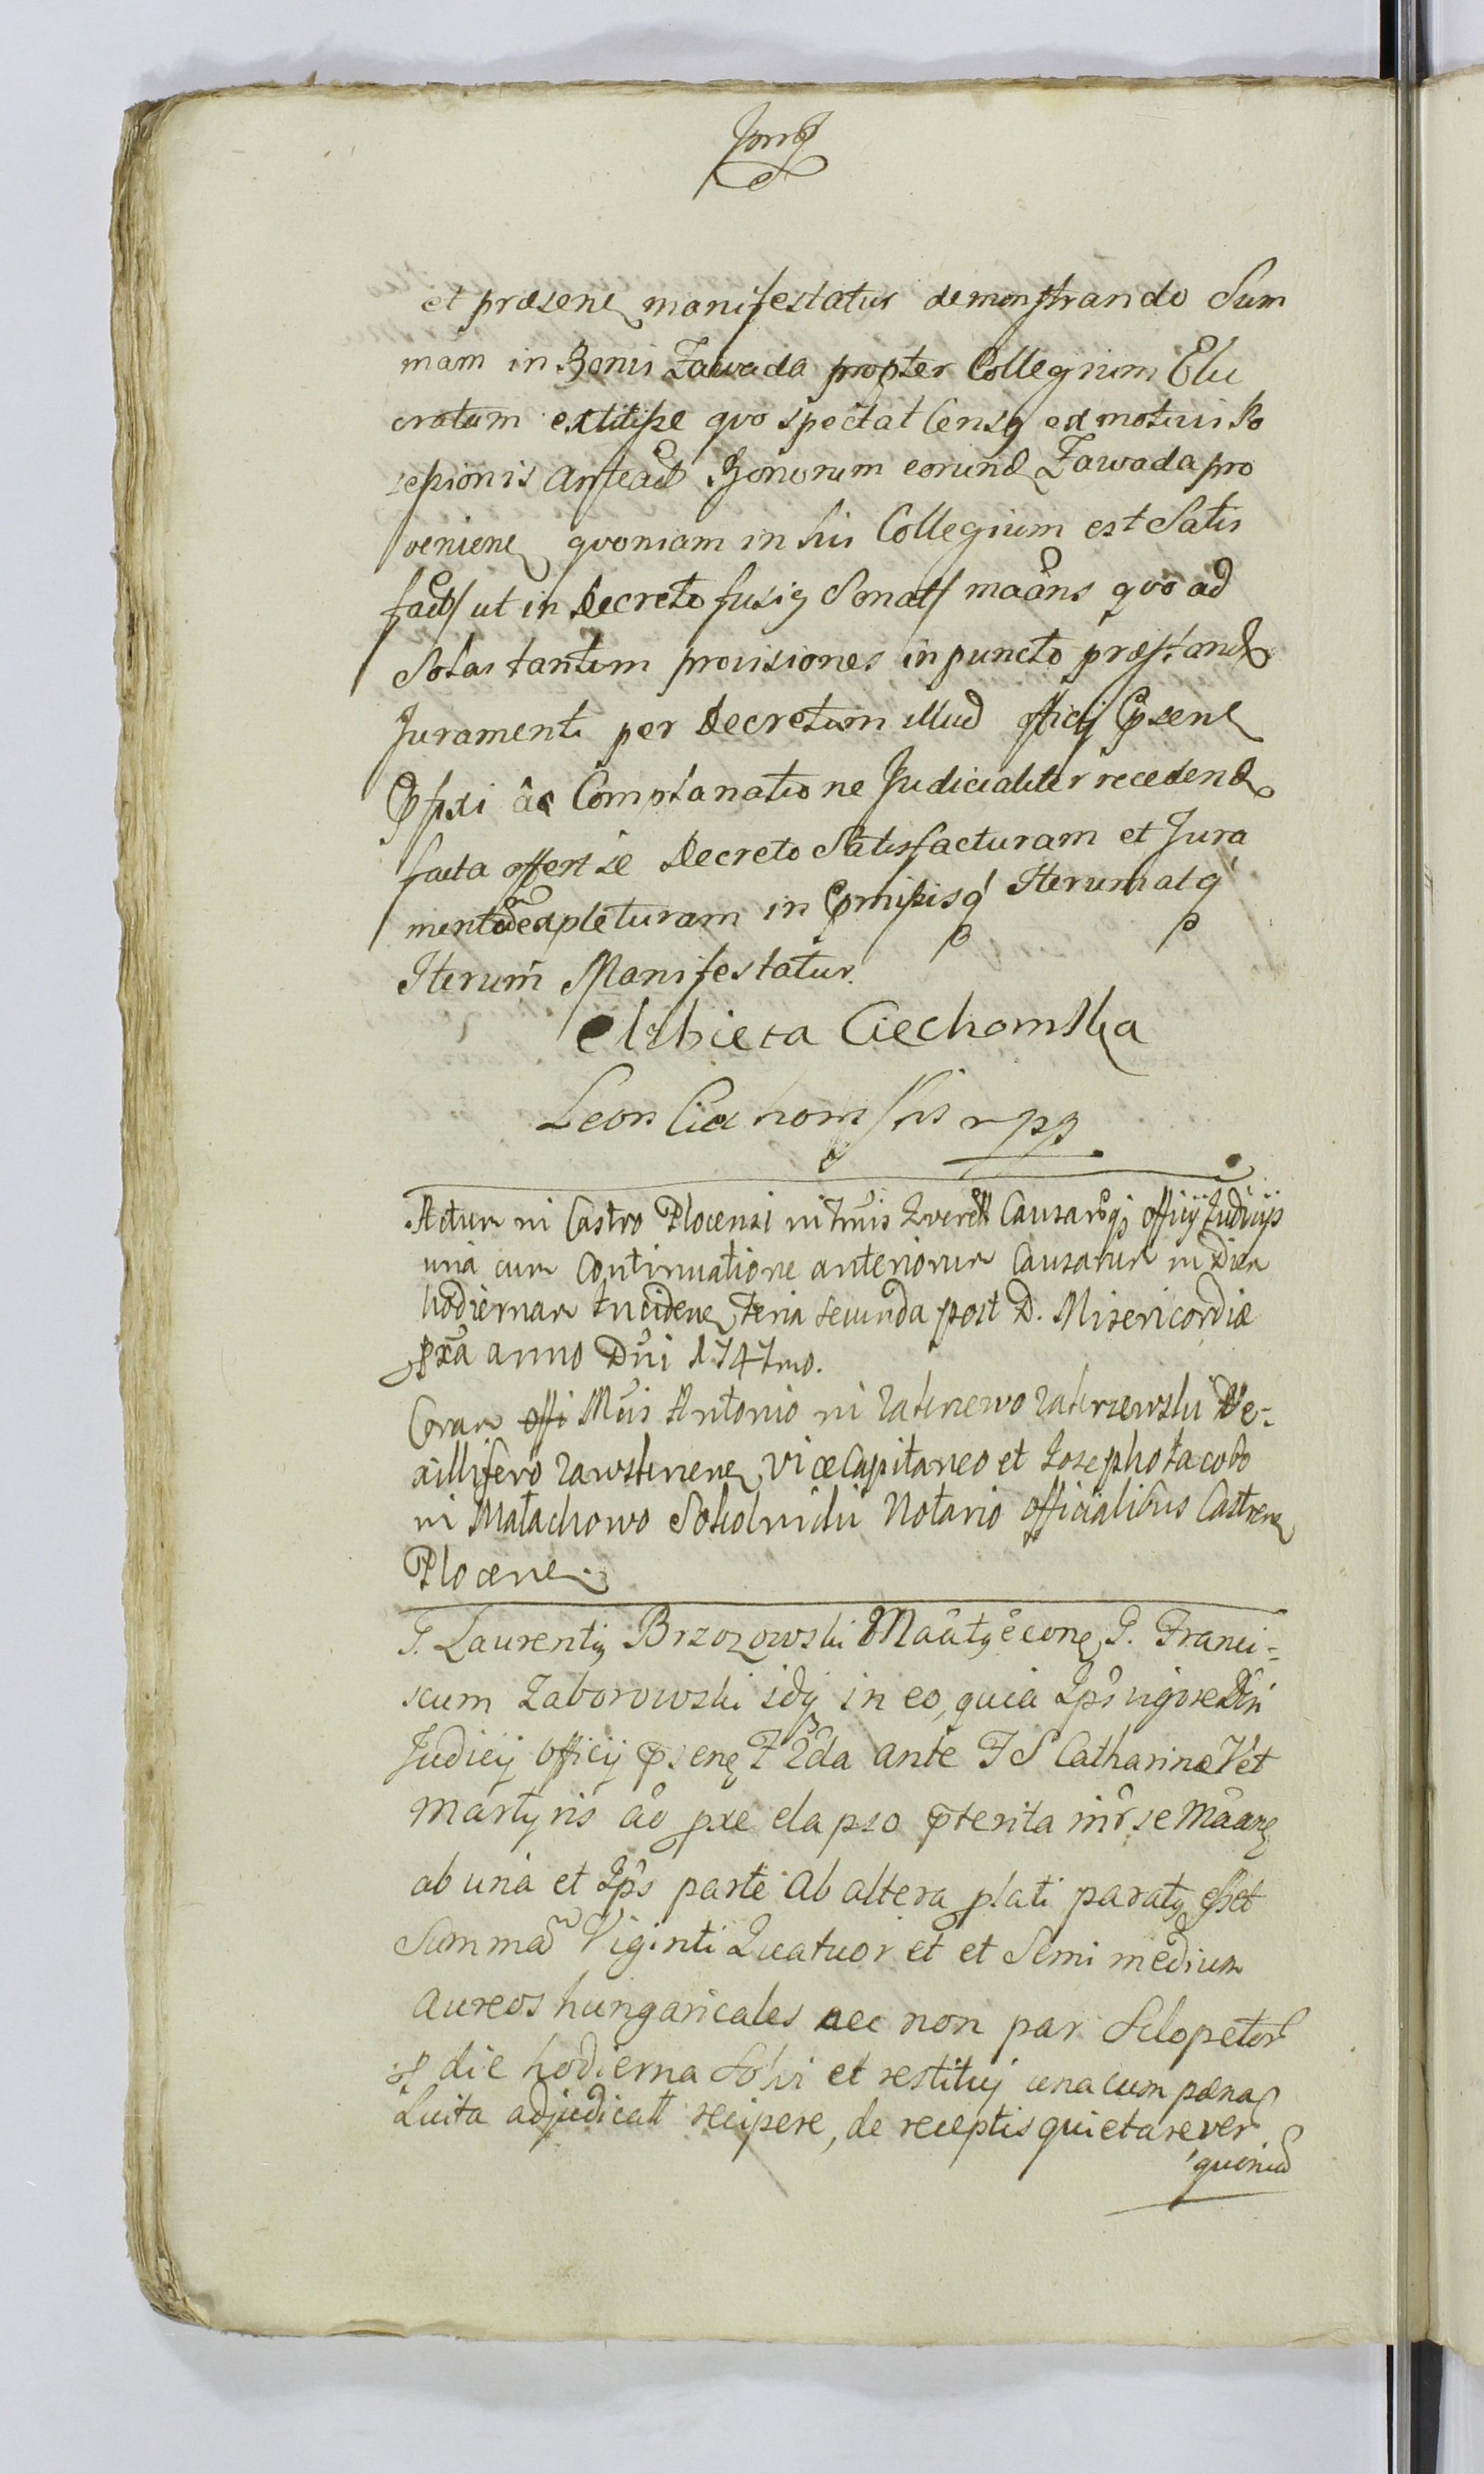 et præsene manifestatur demonstrando Sum
mam in Bonis Zawada propter Collegium Elu
cratum extitiße quo spectat Censq ex motivis Po
seßionis Antead Bonorum eorund Zawada pro
veniene quoniam in his Collegium est Satis
fact ut in Decreto fusiq Sonat maans quo ad
Solas tantum provisiones in puncto præstand
Juramenti per Decretum illud officij Psene
Ppxi ac Complanatione Judicialiter recedend
facta offert se Decreto Satisfacturam et Jura
mento expleturam in Præmißisq Iterum atq
Iterum Manifestatur.
elzbieta Ciechomska
Leon Ciechomski mpp
Actum in Castro Plocensi in Tmis Querell Causarq officij Judicijs
una cum Continuatione anteriorum Causarum in Diem
hodiernam Incidene feria secunda post D. Misericordiæ
pxa anno Dni 1747mo.
Coram offi Mcis Antonio in Zakrzewo Zakrzewski Ve-
xillifero Rawskiene ViceCapitaneo et Josepho Jacobo
in Małachowo Sokolnicki Notario officialibus Castrene
Plocene
G. Laurentiq Brzozowski Maatq econe G. Franci=
scum Zaborowski idq in eo, quia Ips vigore Dti
Judicij Officij Psene F 2da ante F S Catharinæ V et
Martyris ao pxe elapso pterita inr se Maane
ab una et Ips parte ab altera plati paratq eßet
Summa Viginti Quatuor et et Semi medium
Aureos hungaricales nec non par Sclopetor
p die hodierna Solvi et restituj una cum pœna
Luita adjudicat recipere, de receptis quietare ver
quoniā